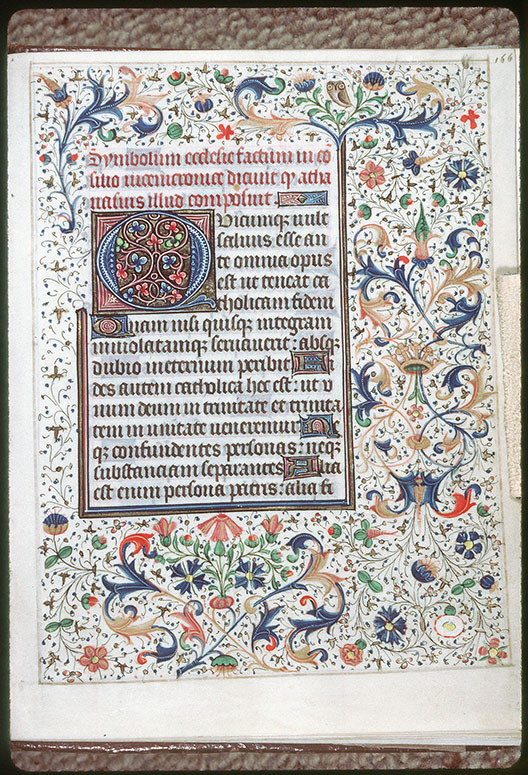 166
Symbolum ecclesie factum in co
silio niceni cronice dicunt q atha
nasius illud composuit
Quicumqz uult
saluus esse an
te omnia opus
est ut teneat ca
tholicam fidem
Quam nisi quisqz integram
inuiolatamqz seruauerit : absqz
dubio in eternum peribit Fi
des autem catholica hec est : ut v
num deum in trinitate et trinita
tem in unitate ueneremur Ne
qz confundentes personas : neqz
substanciam separantes Alia
est enim persona patris : alia fi